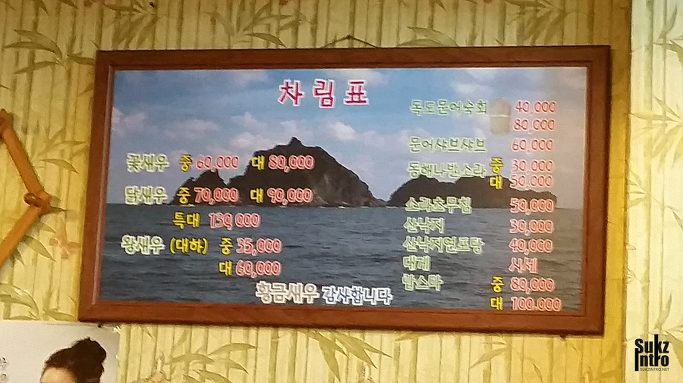 차림표
꽃새우 중 60,000 대 80,000
닭새우 중 70,000 대 90,000
특대 130,000
왕새우 (대하) 중 35,000
대 60,000
황금새우 감사합니다
독도문어숙회 40,000
80,000
문어샤브샤브 60,000
동해나팔소라 중 30,000
대 50,000
소라초무침 50,000
산낙지 30,000
산낙지연포탕 40,000
대게 시세
중 80,000
대 100,000
Sukz
Intro
SUKZINTRO.NET